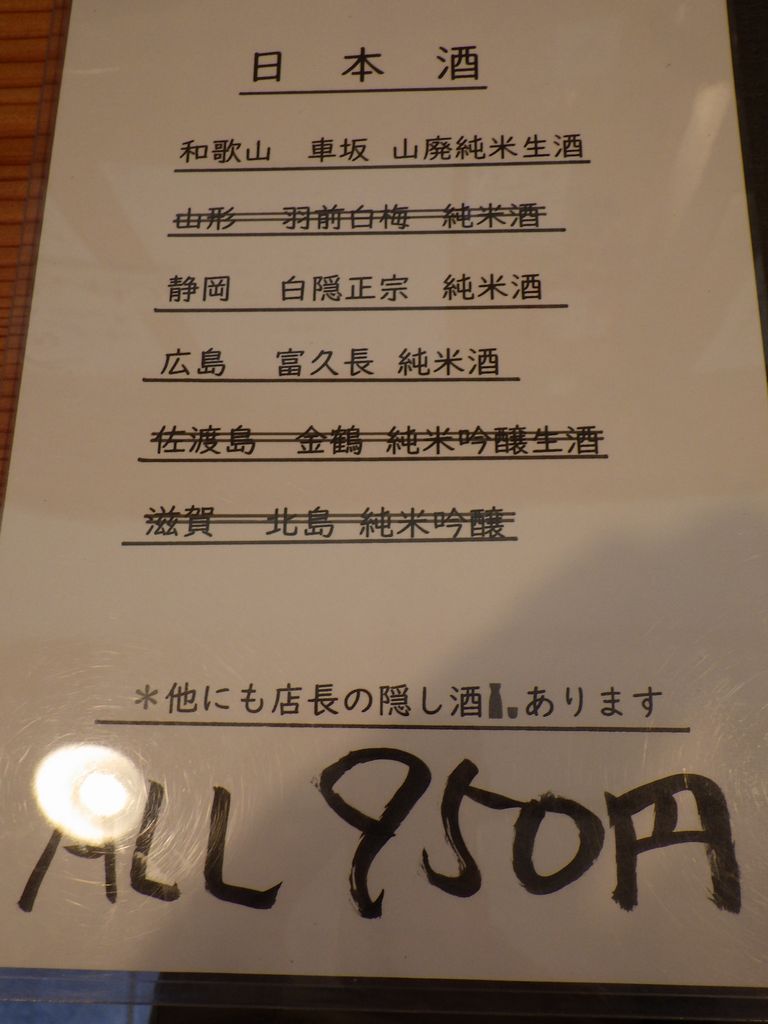 日本酒
和歌山 車坂 山廃純米生酒
山形 羽前白梅 純米酒
静岡 白隠正宗 純米酒
広島 富久長 純米酒
佐渡島 金鶴 純米吟醸生酒
滋賀 北島 純米吟醸
＊他にも店長の隠し酒🍶あります
ALL 950円